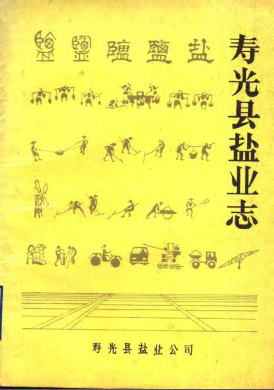 寿光县盐业志
盐
寿光县盐业公司